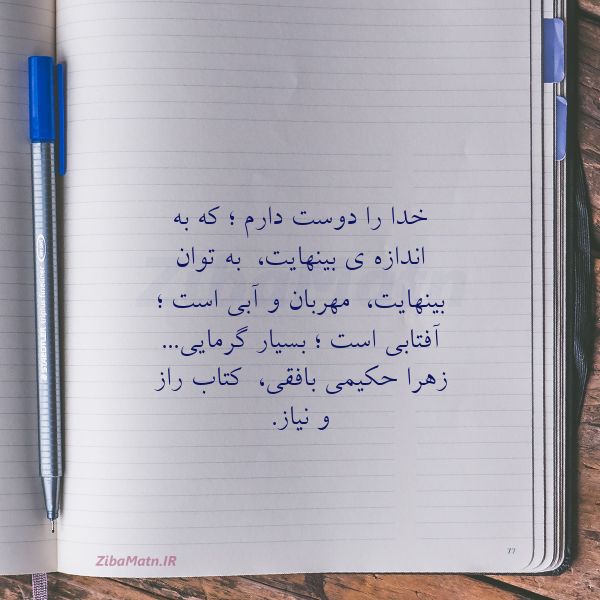 خدا را دوست دارم ؛ که به
اندازه ی بینهایت، به توان
بینهایت، مهربان و آبی است ؛
آفتابی است ؛ بسیار گرمایی...
زهرا حکیمی بافقی، کتاب راز
و نیاز.
77
ZibaMatn.IR